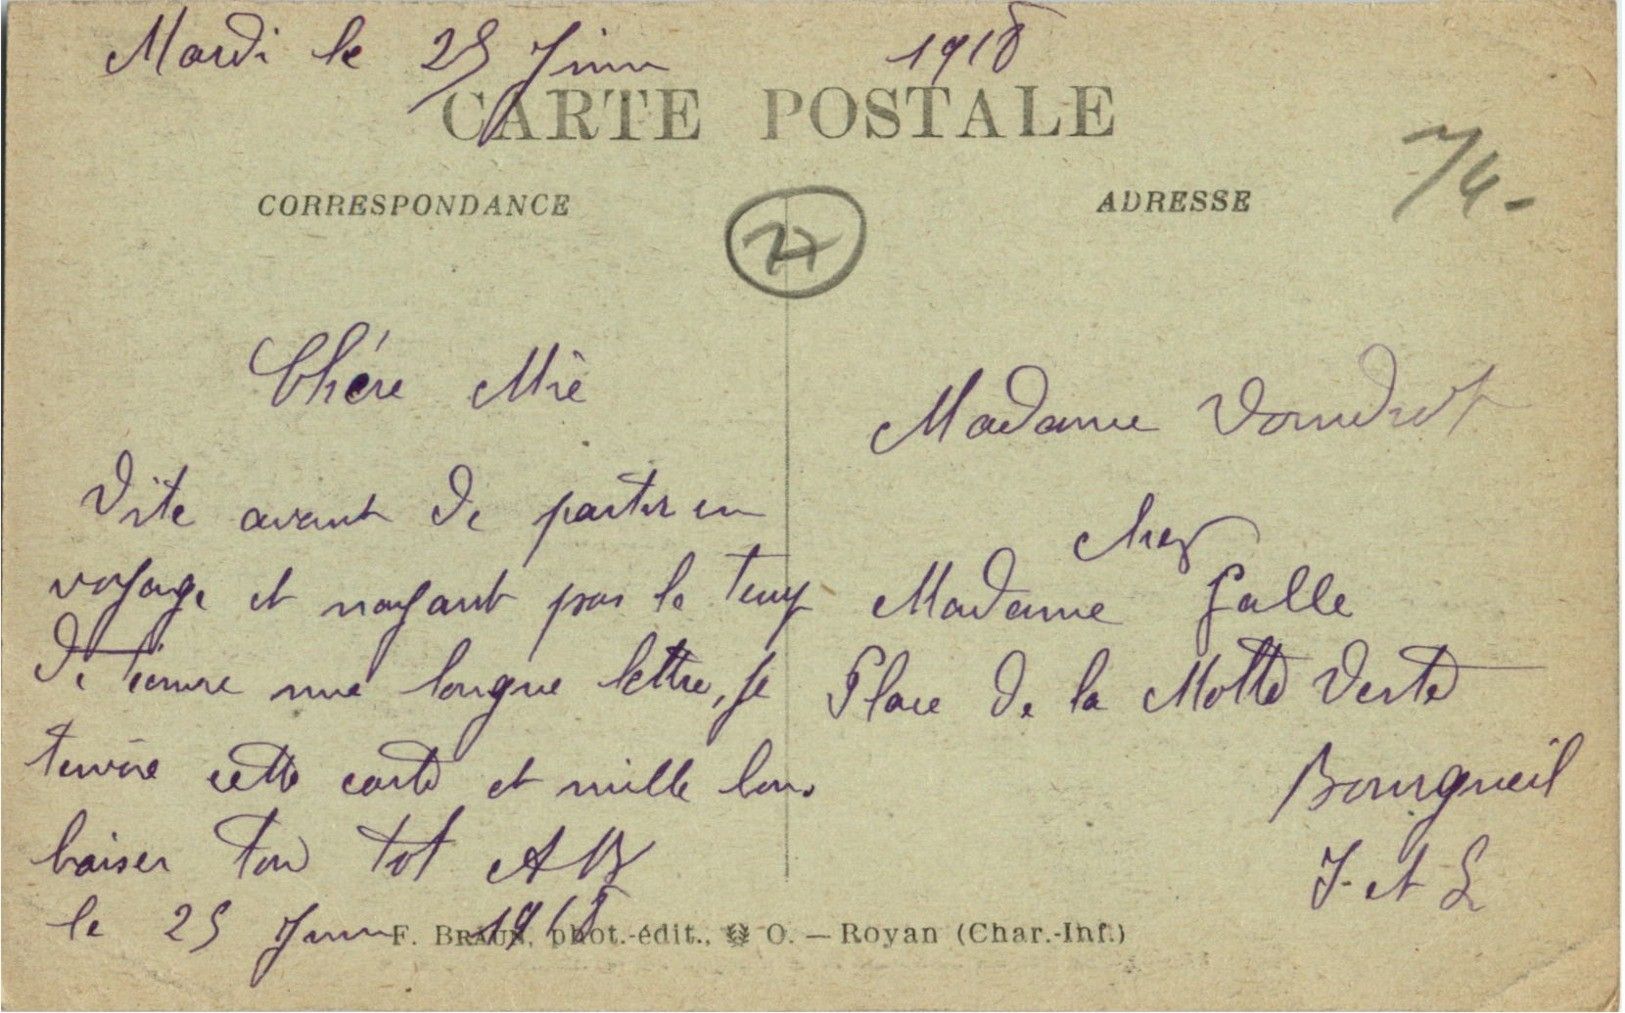 Mardi le 25 Juin 1918
CARTE POSTALE
CORRESPONDANCE
ADRESSE
74-
Chére Mie
Vite avant de partir en
voyage et nayant pas le temp
de tecrire une longue lettre, je
tenvoie cette carte et mille bons
baiser ton tot AB
le 25 Juin 1918
Madame
chez
Madame Galle
Place de la Motte Verte
Bourgueil
I. et L
F. BRAUN, phot.-édit., O. — Royan (Char.-Inf.)